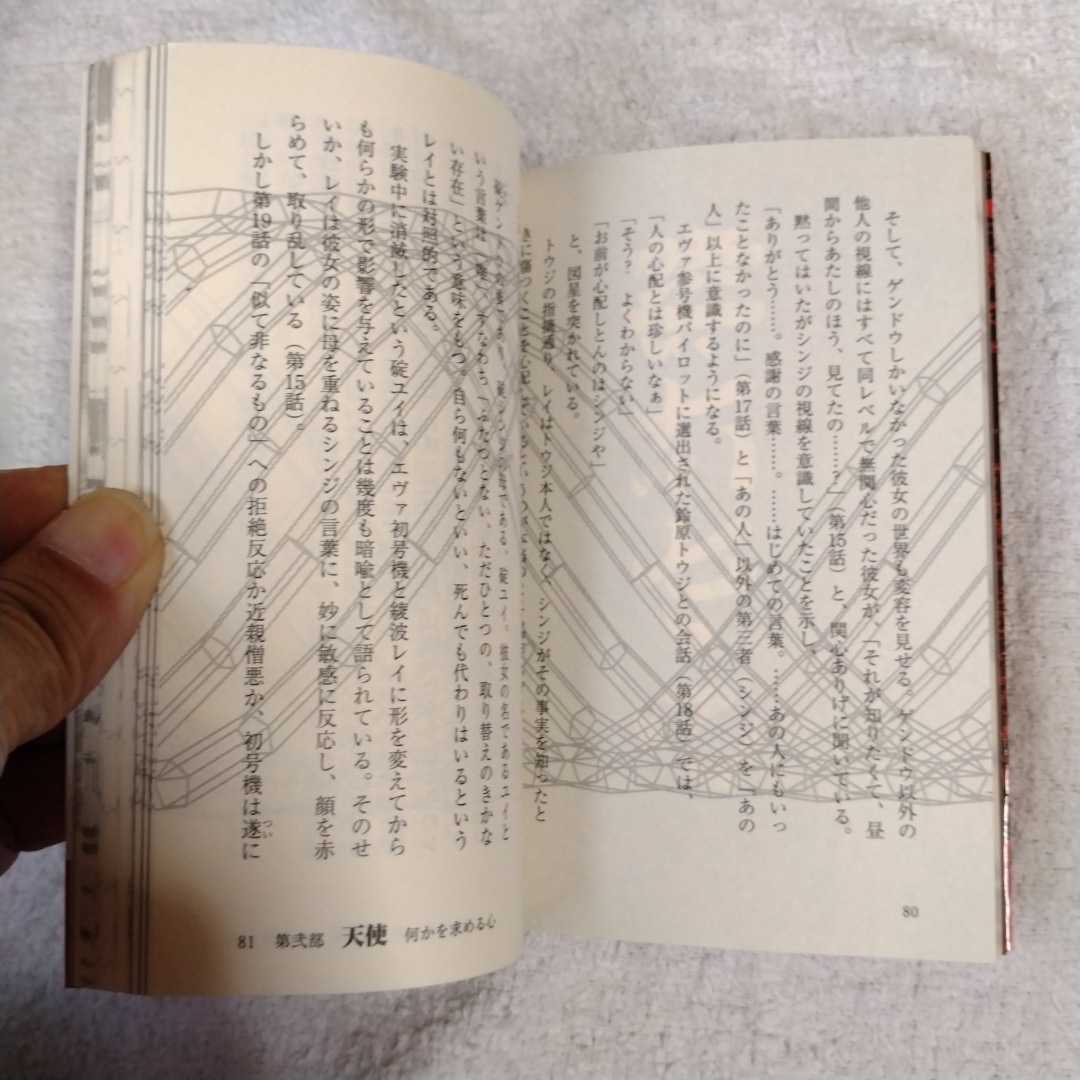 そして、ゲンドウしかいなかった彼女の世界も変容を見せる。ゲンドウ以外の
他人の視線にはすべて同レベルで無関心だった彼女が、「それが知りたくて、昼
間からあたしのほう、見てたの……？」（第15話）と、関心ありげに聞いている。
黙ってはいたがシンジの視線を意識していたことを示し、
「ありがとう……。感謝の言葉……。……はじめての言葉。……あの人にもいっ
たことなかったのに」（第17話）と「あの人」以外の第三者（シンジ）を「あの
人」以上に意識するようになる。
エヴァ参号機パイロットに選出された鈴原トウジとの会話（第18話）では、
「人の心配とは珍しいなぁ」
「そう？　よくわからない」
「お前が心配しとんのはシンジや」
と、図星を突かれている。
トウジの指摘通り、レイはトウジ本人ではなく、シンジがその事実を知ったと
80
いう言葉は「唯」、すなわち「ふたつとない、ただひとつの、取り替えのきかな
い存在」という意味をもつ。自ら何もないといい、死んでも代わりはいるという
レイとは対照的である。
実験中に消滅したという碇ユイは、エヴァ初号機と綾波レイに形を変えてから
も何らかの形で影響を与えていることは幾度も暗喩として語られている。そのせ
いか、レイは彼女の姿に母を重ねるシンジの言葉に、妙に敏感に反応し、顔を赤
らめて、取り乱している（第15話）。
しかし第19話の「似て非なるもの」への拒絶反応か近親憎悪か、初号機は遂に
つい
81　第弐部　天使　何かを求める心